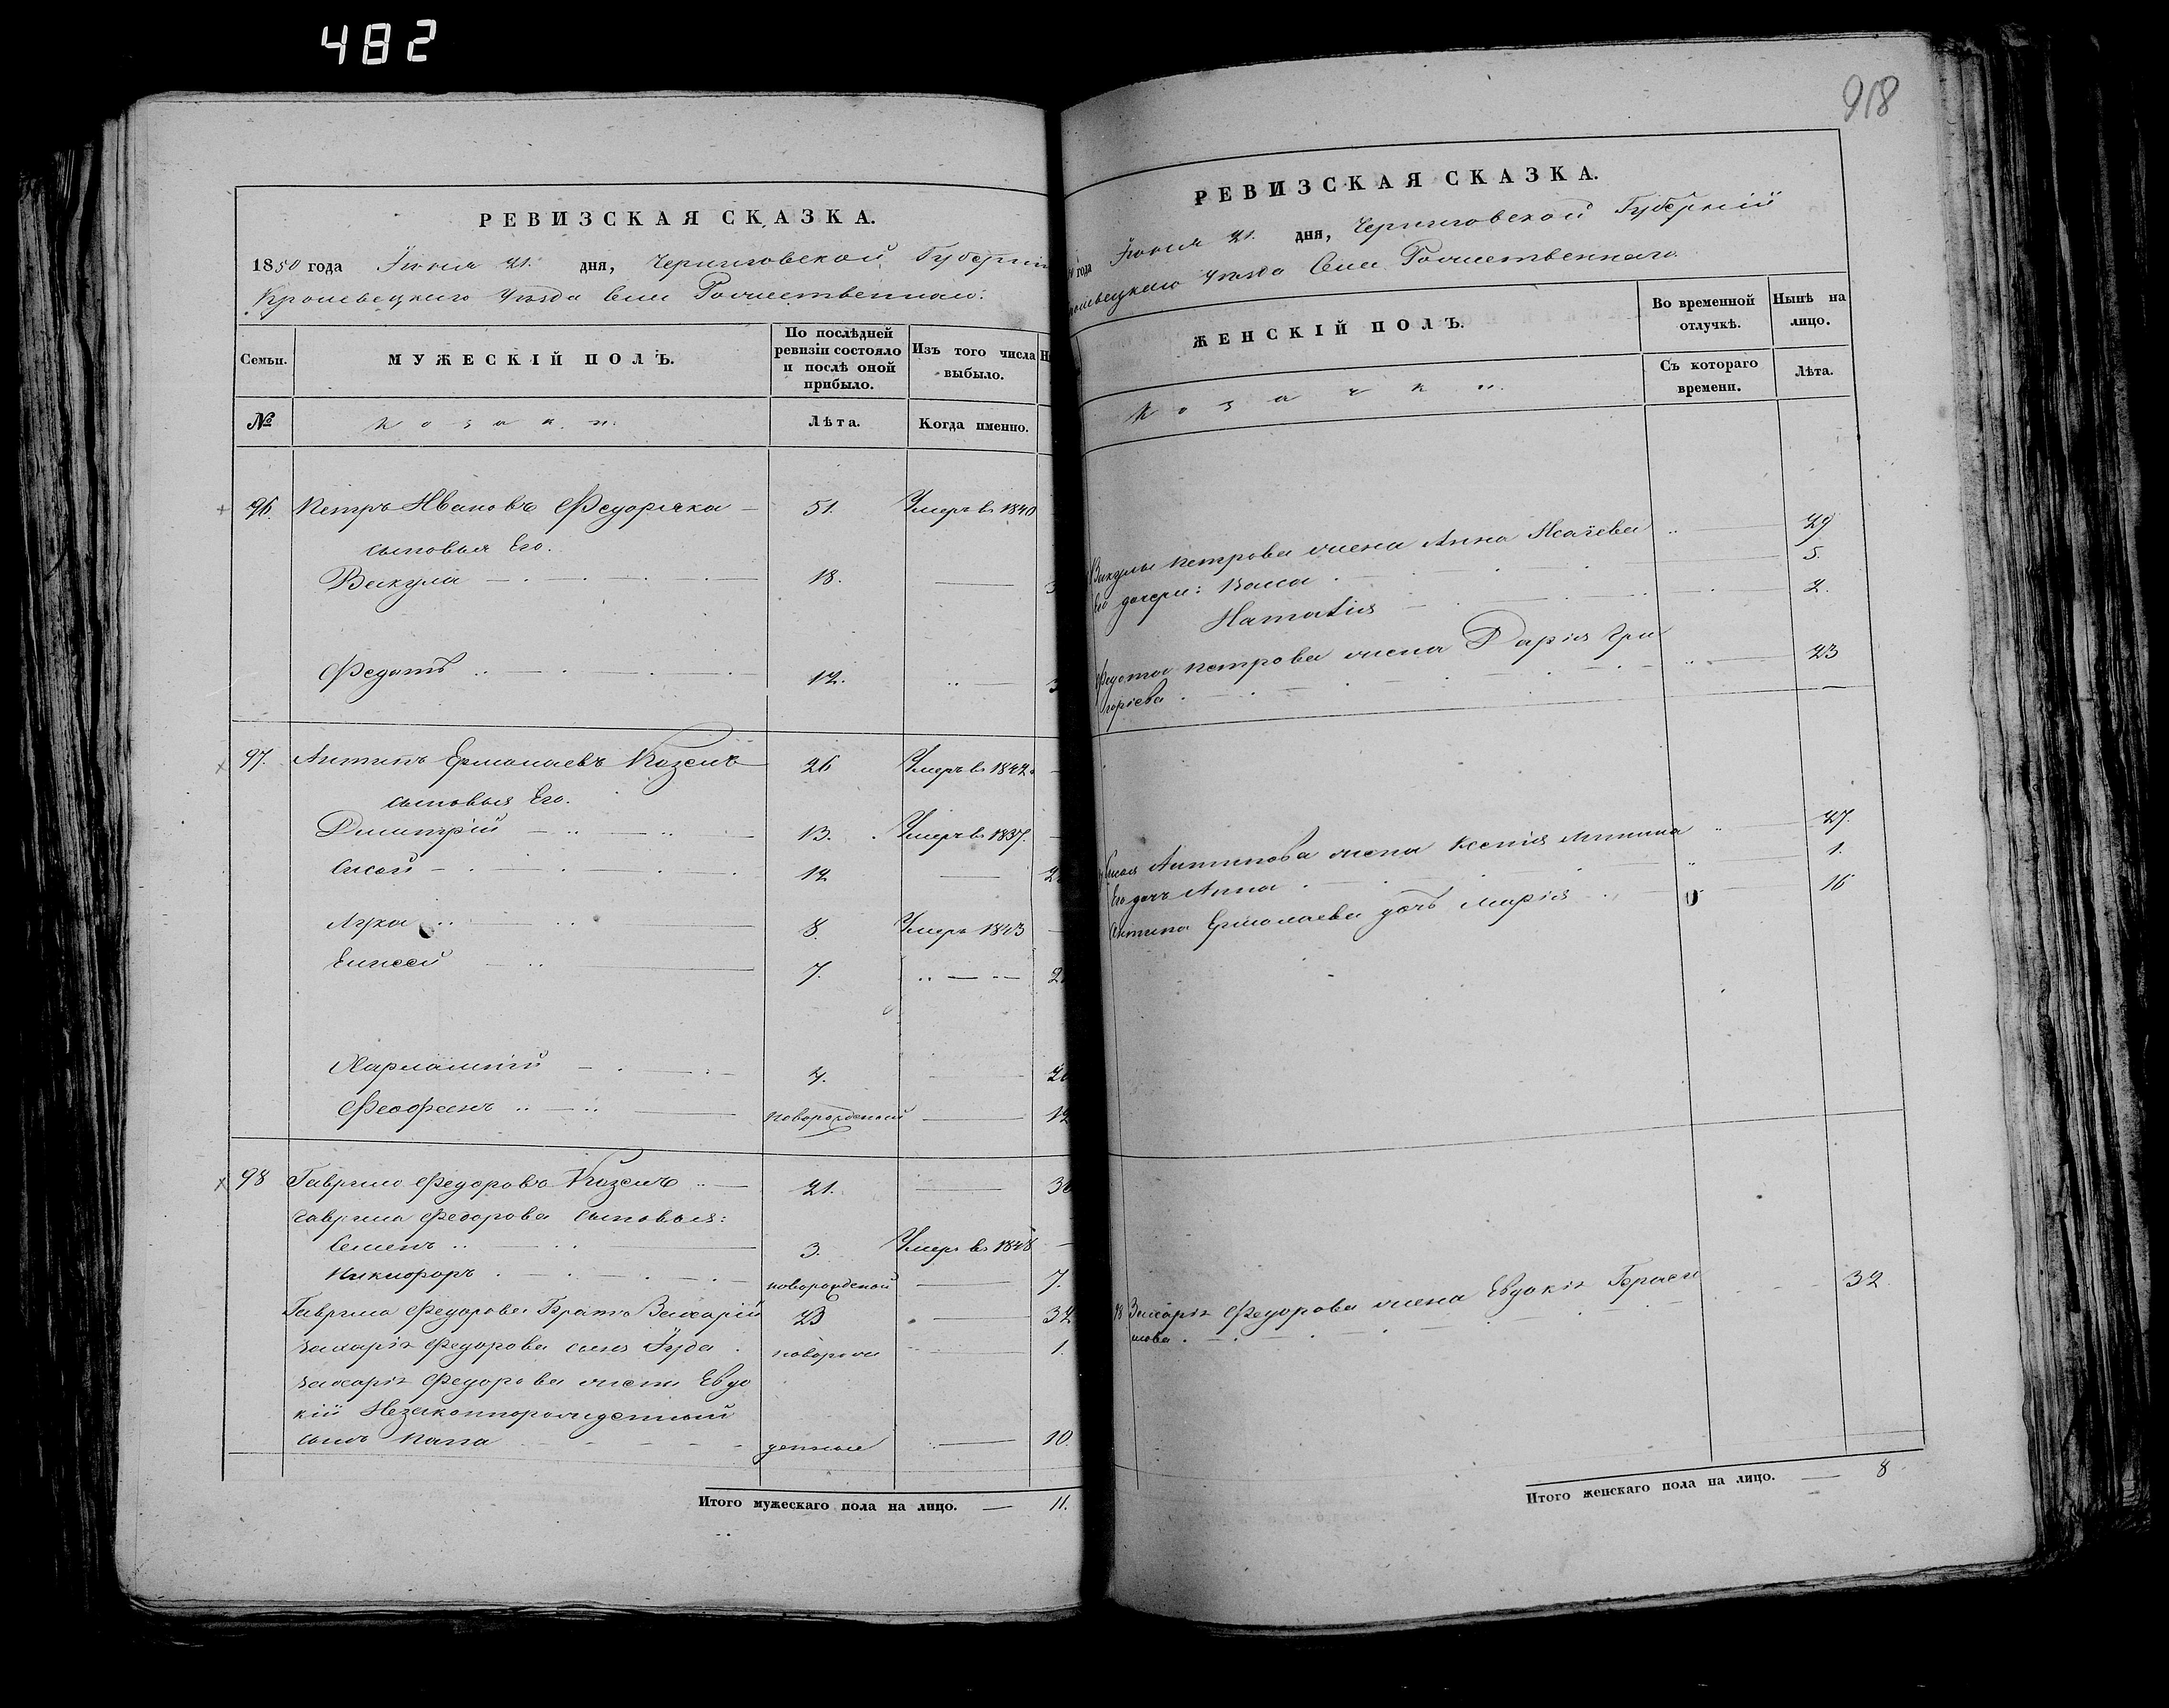 482
РЕВИЗСКАЯ СКАЗКА.
1850 года Іюня 21. дня, Черниговской Губерніи
Кролевецкаго Уѣзда Села Рожественнаго.
Семьи. МУЖЕСКІЙ ПОЛЪ. По послѣдней ревизіи состояло и послѣ оной прибыло. Изъ того числа выбыло.
№ Козаки. Лѣта. Когда именно.
96. Петръ Ивановъ Федорячка 51. Умеръ въ 1840
сыновья Его.
Викула 18.
Федотъ 12.
97. Антипъ Ермолаевъ Козелъ 26 Умеръ въ 1842
сыновья Его.
Димитрій 13. Умеръ въ 1837.
Сисой 12
Лука 8. Умеръ 1843
Елисей 7.
Харлампій 4.
Феофанъ новорожденный 12
98 Гаврило Федоровъ Козелъ 21.
Гаврила Федорова сыновья:
Семенъ 3. Умеръ въ 1848
Никифоръ новорожденой 7.
Гаврила Федорова Братъ Захарій 23 32
Захарія Федорова сынъ Іуда 1.
Захарія Федорова жены Евдо
кіи Незаконнорожденный
сынъ 10.
Итого мужескаго пола на лицо. — 11.
918
РЕВИЗСКАЯ СКАЗКА.
года Іюня 21. дня, Черниговской Губерніи
Уѣзда Села Рожественнаго
ЖЕНСКІЙ ПОЛЪ. Во временной отлучкѣ. Нынѣ на лицо.
Козачки. Съ котораго времени. Лѣта.
Викулы Петрова жена Анна Исаіева 29
Его дочери: Васса 5.
Наталія 2.
Федота Петрова жена Дарія Гри 23
горіева
Сисоя Антипова жена Ксенія 27.
Его дочь Анна 1.
Антипа Ермолаева дочь Марія 16
98 Захарія Федорова жена Евдокія Гераси 32
мова
Итого женскаго пола на лицо. — 8